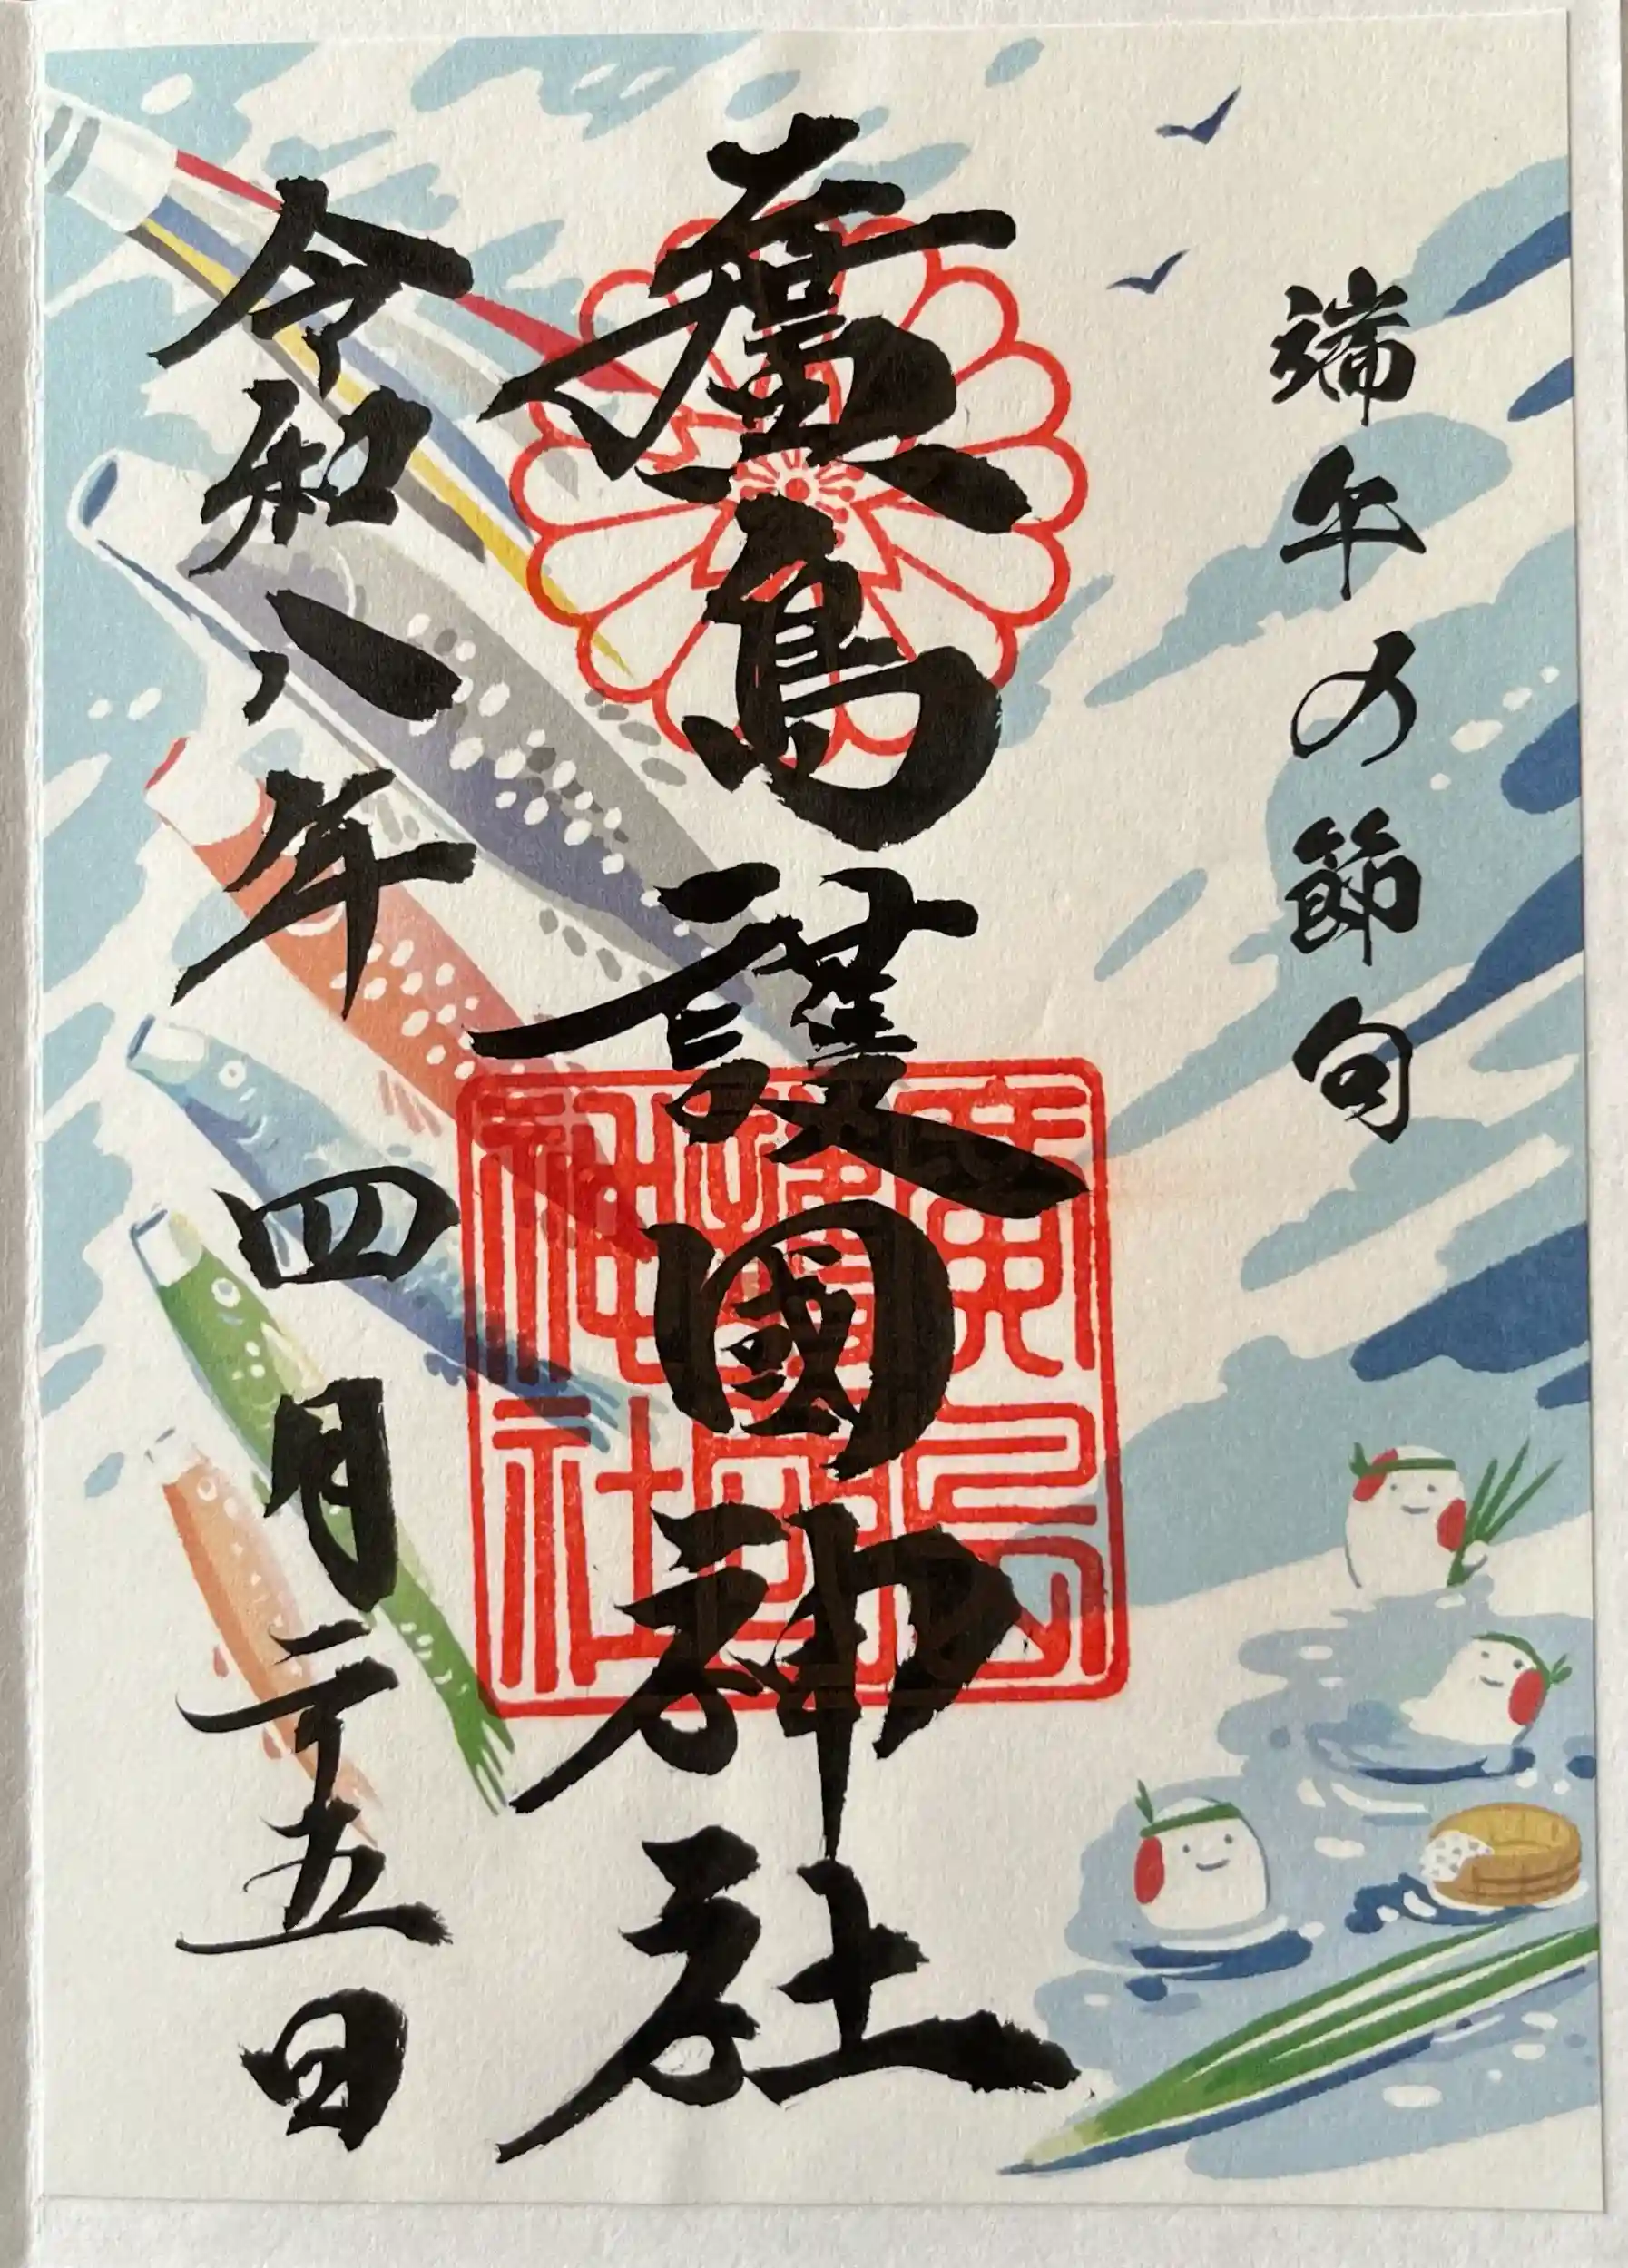 端午の節句
廣島護國神社
令和八年四月二十五日
廣島
護國
神社